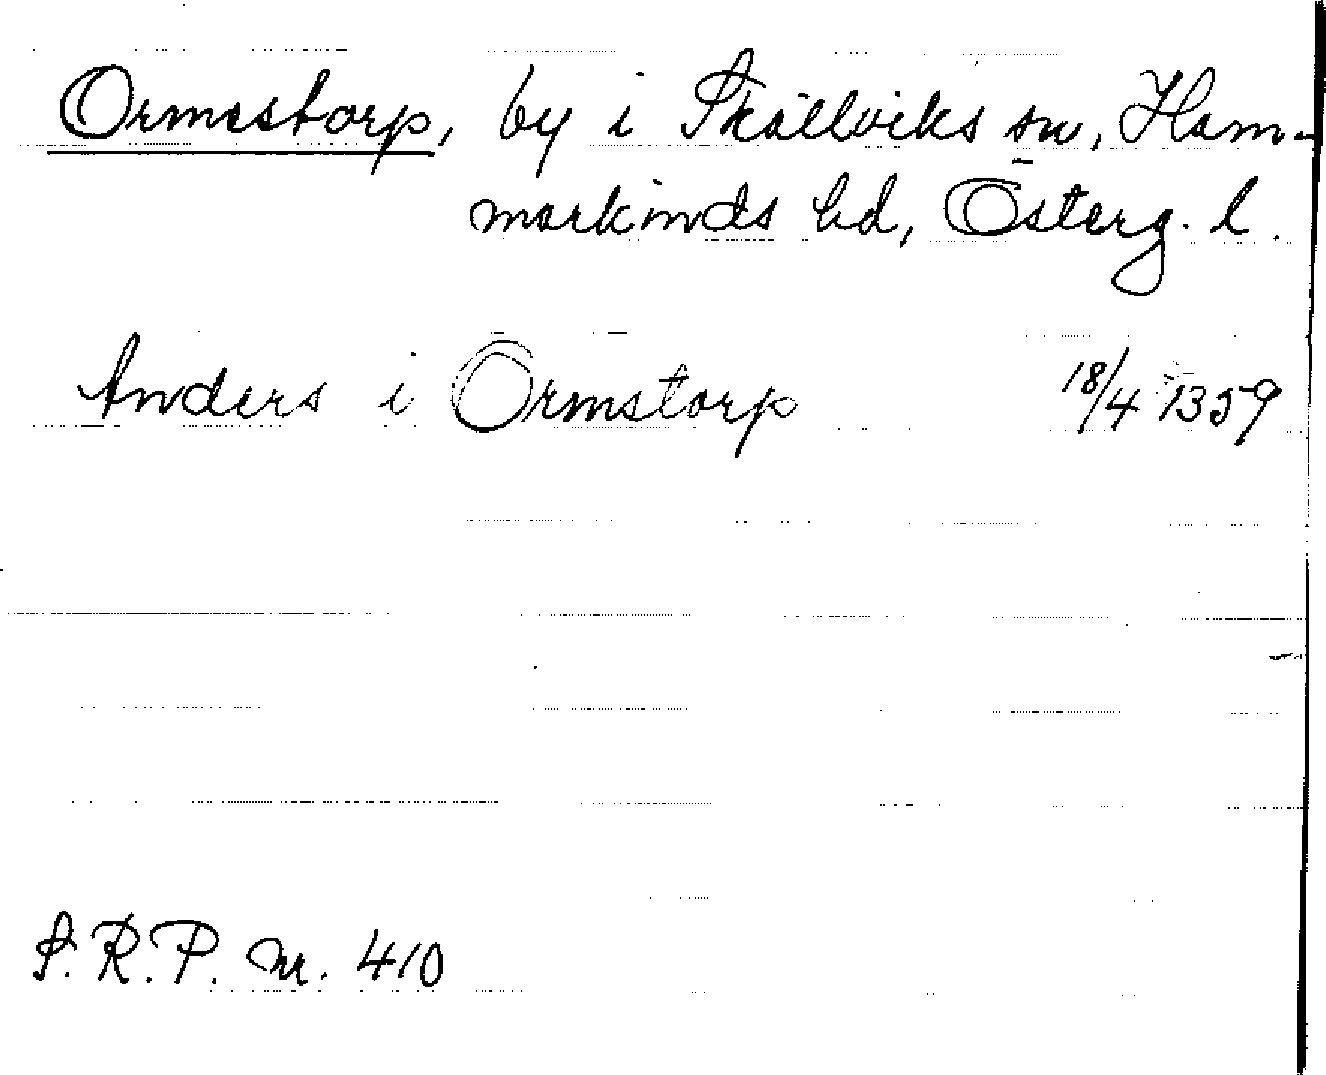 Ormestorp, by i Skällviks sn, Ham-
markinds hd, Österg. l.
Anders i Ormstorp 18/4 1359
S.R.P. nr. 410